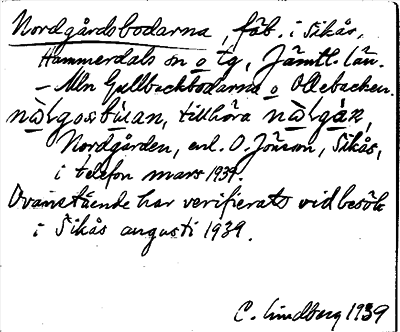 Nordgårdsbodarna, fäb. i Sikås,
Hammerdals sn o tg, Jämtl. län.
– Mln Gullbackbodarna o Ollebacken.
nàɭgosbùan, tillhöra nàɭgàɳ,
Nordgården, enl. O. Jönson, Sikås,
i telefon mars 1939.
Ovanstående har verifierats vid besök
i Sikås augusti 1939.
C. Lindberg 1939